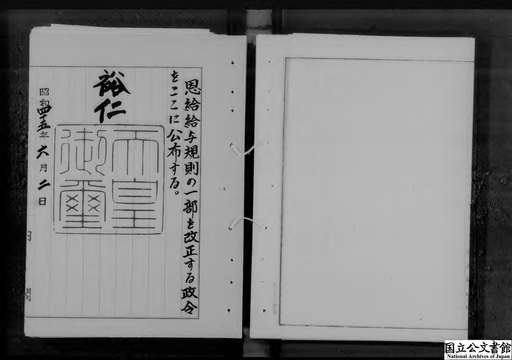 恩給給与規則の一部を改正する政令
をここに公布する。
裕仁
天皇
御璽
昭和四十五年六月二日
国立公文書館
National Archives of Japan